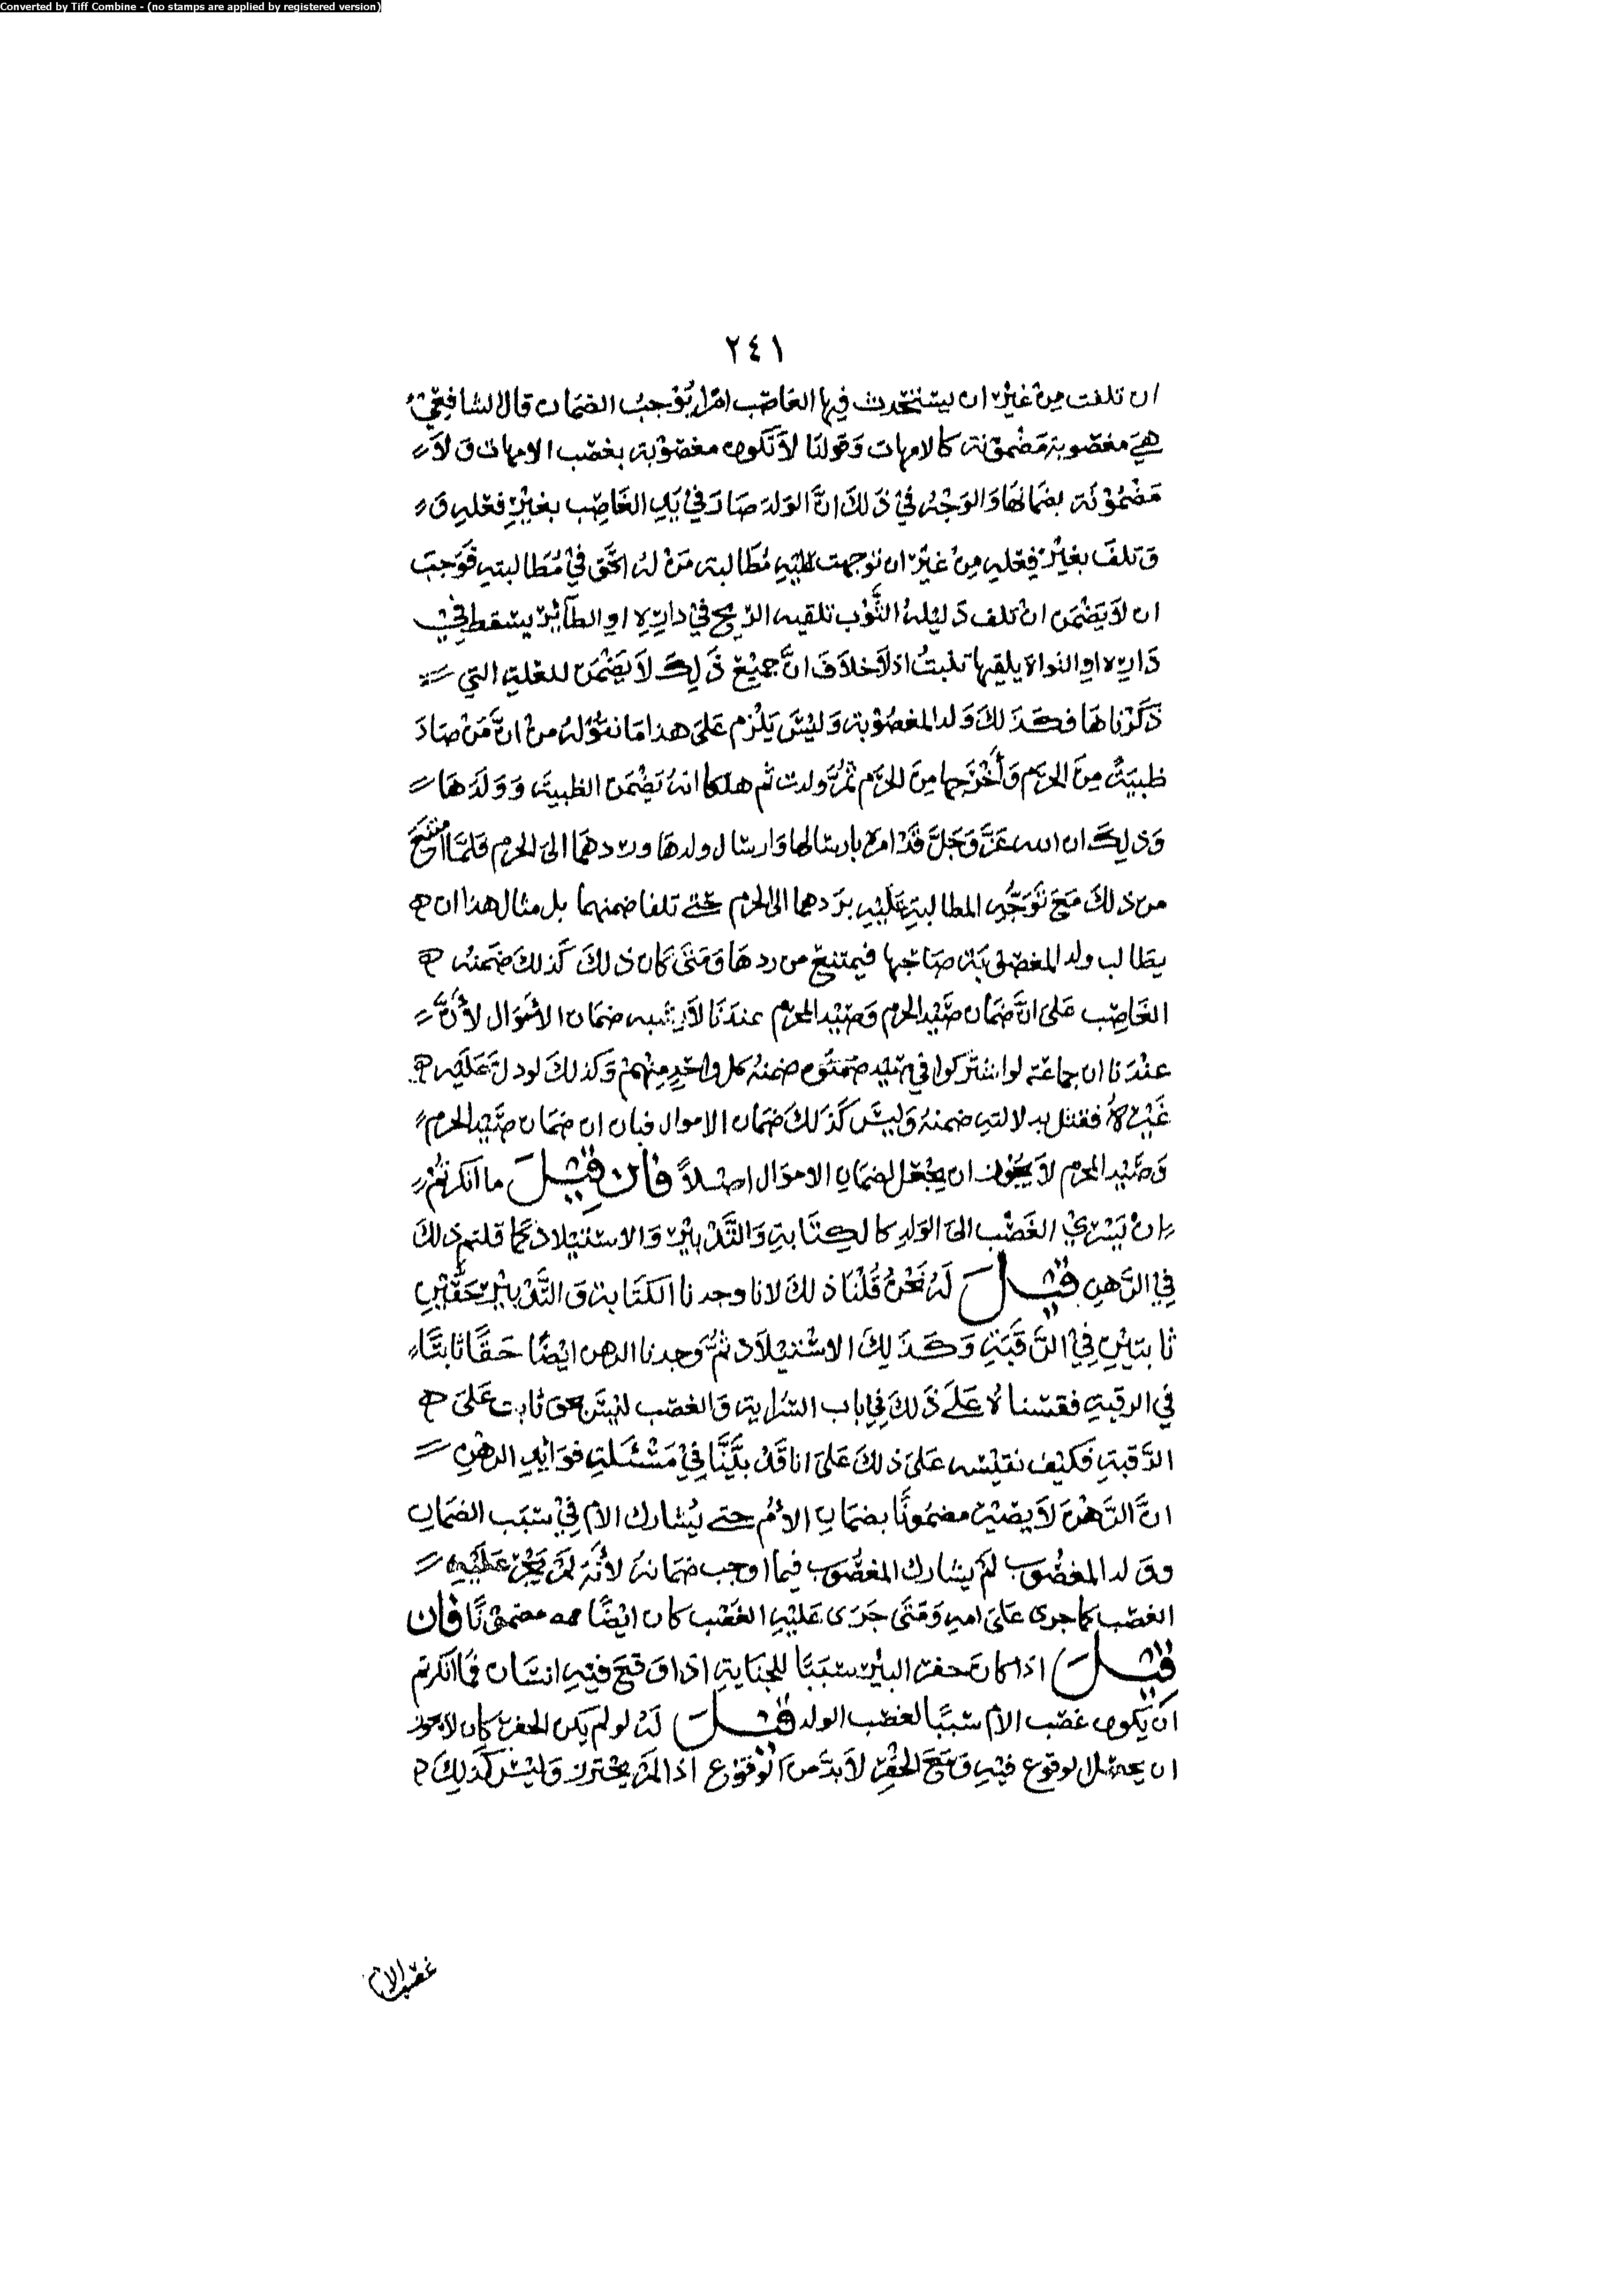 Converted by Tiff Combine - (no stamps are applied by registered version)
٢٤١
ان تلفت مِنْ غيْرِ ان يستحدث فيها الغاصب امرًا يُوْجبُ الضمان قال الشافِعيْ
هِيَ مغصوبة مَضْمونة كالامهات وَقولنا لاَ تكون مغصوْبة بغصب الامهات وَلاَ
مَضْمُوْنَة بضمانها وَالوَجْهُ فيْ ذَلكَ انَّ الوَلدَ صَارَ فيْ يَدِ الغَاصِبِ بغيْرِ فعْلهِ وَ
وَتلفَ بغيْرِ فِعْلهِ مِنْ غيْرِ ان توجهت عليْهِ مُطَالبة مَنْ لهُ الحَق فيْ مُطَالبتهِ فوَجبَ
ان لاَ يَضْمَن انْ تلف دَليْلهُ الثَّوْب تلقيه الرّيح فيْ دارِهِ او الطآئِر يسْقط فِيْ
دَارِه او النواة يلقيها تنبتُ اذ لاَ خلاَفَ انَّ جميْعَ ذَلِكَ لاَ يَضْمَن للعْلةِ التي
ذَكَرْناهَا فكَذَلكَ وَلد المغصُوْبة وَليْسَ يَلْزم عَلىَ هذا مَا نقوْلهُ منْ انَّ مَنْ صَادَ
ظبيَةً مِنَ الحرَم وَأَخْرَجها مِنَ الحرَم ثُمَّ ولدت ثم هلكا انهُ يَضْمَن الظبيَة وَوَلدَهَا
وَذلِكَ ان الله عَزَّ وَجَلَّ قَدْ امرَه بارسَالها وَارسَال ولدهَا وردهمَا الىَ الحَرم فلمَّا امْتَنعَ
من ذلكَ مَعَ تَوَجُّهِ المطالبةِ عَليْهِ برَدهما الى الحرم حتى تلفا ضمنهما بل مثال هذا ان
يطالب ولد المغصوْبَة صَاحبها فيمتنع من ردهَا وَمَتىَ كَان ذلكَ كَذلكَ ضَمنهُ
الغَاصِب عَلىَ انَّ ضمَان صَيْد الحرم وَصَيْد المحرم عندَنَا لاَ يشبه ضمَان الاَمْوَال لأَنَّ
عنْدَنا ان جمَاعَة لو اشتركوا في صَيْد ضمنهُ كل وَاحدٍ مِنْهمْ وَكذلكَ لو دلَّ عَليْهِ
غَيْرهُ فقتل بدلالتهِ ضمنهُ وَليْسَ كَذَلكَ ضمَان الاموال فبان ان ضمَان صَيْد الحرم
وَصَيْد المحرم لاَ يَجُوْز ان يجْعَل لضمَان الاموَال اصْلاً فَان قِيْلَ ما انكرتمْ
انْ يَسْريْ الغَصْب الىَ الوَلدِ كالكِتَابةِ وَالتَّدْبيْر وَالاستيْلاد كمَا قلتم ذلكَ
فِي الرَّهن قيْلَ لهُ نَحْنُ قُلْنَا ذلكَ لانا وجدنا الكتَابة وَالتَّدْبيْر حَقّيْنِ
ثابتيْنِ فيْ الرَّقَبَةِ وَكَذَلِكَ الاسْتيْلاَد ثمَّ وَجدنا الرهن ايْضًا حَقًّا ثابتًا
في الرقبةِ فقسْناهُ عَلىَ ذَلكَ فِي باب السّراية وَالغصْب ليْسَ بحق ثابت عَلىَ
الرَّقبةِ فَكيْف نقيْسه عَلىَ ذلكَ عَلىَ انا قَدْ بَيَّنَّا فيْ مَسْئَلةِ فوَائِد الرهْنِ
انَّ الرَّهْنَ لاَ يصيْر مضمُونًا بضمَان الأمُ حتى يُشارك الام فيْ سَبَب الضمَان
وولد المغصُوب لَمْ يشارك المغصُوب فيما اوجب ضمَانهُ لأنَّه لَمْ يَجْر عَليْهِ
الغصْب كما جرى عَلىَ امهِ وَمَتىَ جَرَى عَليْهِ الغَصْب كان ايْضًا مضمُوْنًا فَان
قيْلَ اذا كانَ حفر البئر سَبَبًا للجنَايةِ اذا وَقعَ فيْهِ انسَان فما انكرتم
اَن يَكون غصْب الام سَببًا لغصْب الولد قيْلَ لهُ لو لم يكن الحفر كان لا يجوز
ان يحصل الوقوع فيْهِ وَمَعَ الحفْرِ لاَ بدَّ من الْوقوْع اذا لمْ يحْترز وَليْسَ كَذَلِكَ
غصب الام